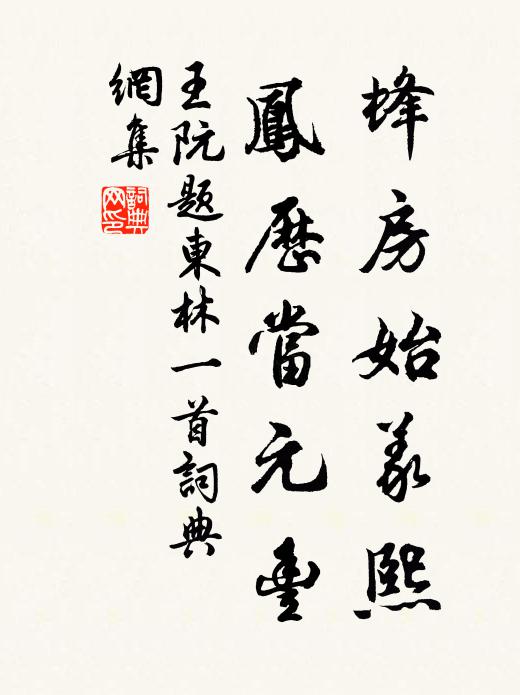 蜂房始羲熙
鳳歷當元豐
王阮題東林一首詞典
網集
詞典
网印